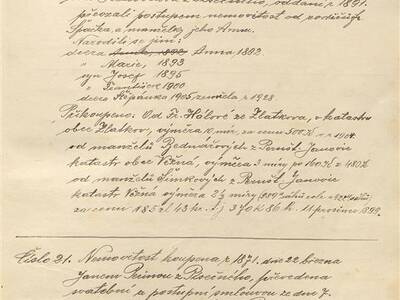 oddáni r. 1891.
převzali postupem nemovitost od rodičů
Špačka a manželky jeho Anna.
Narodili se jim:
dcera Anna 1892 Anna 1892
" Marie, 1893
syn Josef 1895
" František 1900
dcera Štěpánka 1905 zemřela r 1928.
Přikoupeno: Od Fr. Hálové ze Zlatkova, v katastru
obec Zlatkov, výměra 10 mír, za cenu 500 K r 1904.
od manželů Bednářových z Pernšt. Janovic
katastr obec Věžná, výměra 3 míry po 160 K = 480 K
od manželů Šimkových z Pernšt. Janovic
katastr Věžná výměra 2½ míry
za cenu 185 zl 43 kr. t.j. 370 K 86 h. 11 prosince 1899.
Číslo 21. Nemovitost koupena r 1871, dne 22 března
Janem z Rožného, převedena
svatební a postupní smlouvou ze dne 7.